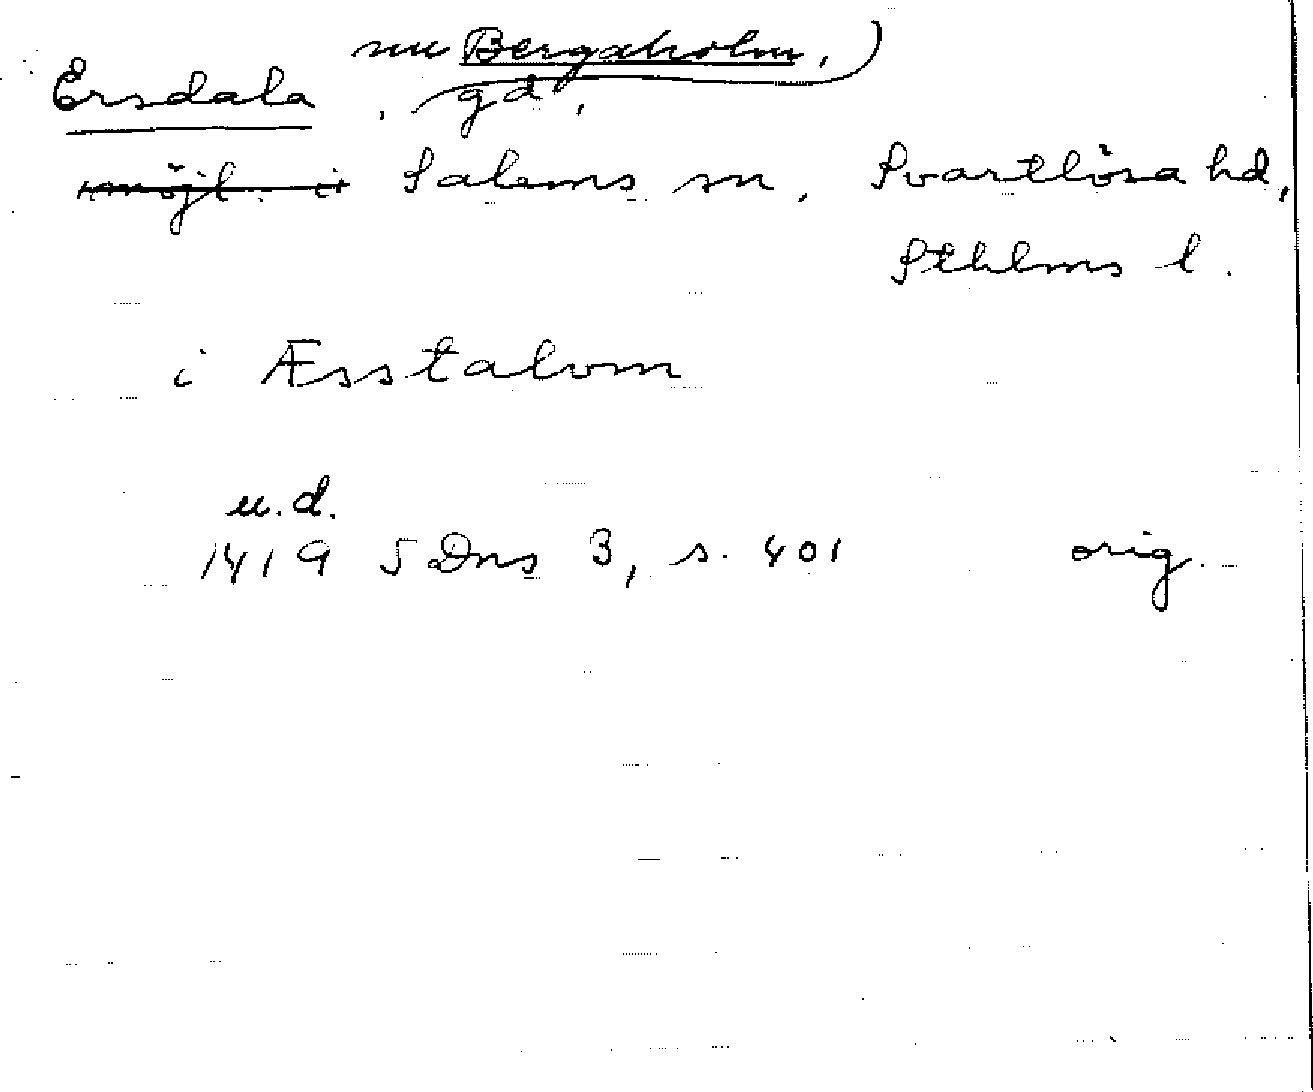 nu Bergaholm,
Ersdala, gd,
möjl. i Salems sn, Svartlösa hd,
Sthlms l.
i Æsstalom
u.d.
1419 SDns 3, s. 401 orig.